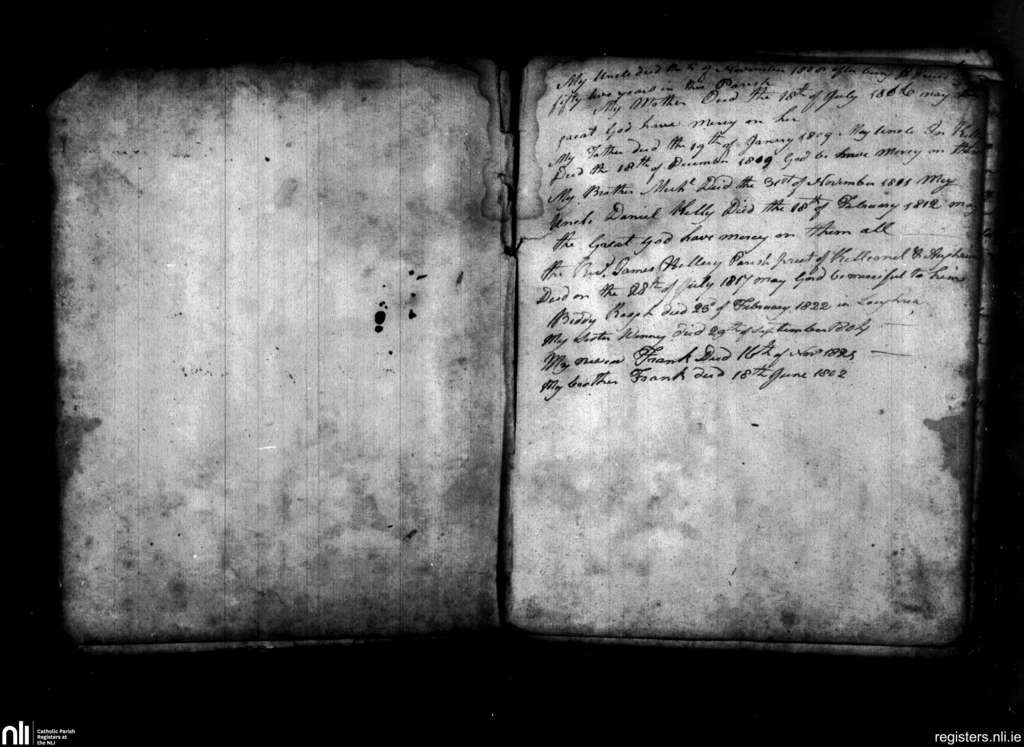 My Uncle died the of November 1808 after being
fifty two years in this Parish
My Mother Died the 18th of July 1806 may the
great God have mercy on her
My Father died the 19th of Janury 1809 My Uncle Jn Kelly
Died the 18th of December 1809 God have mercy on them
My Brother Michl Died the 31st of November 1811 My
Uncle Daniel Kelly Died the 18th of February 1812 may
the Great God have mercy on them all
the Revd James Parish priest of &
Died on the 28th of July 1817 may God be merciful to him
Biddy died 23d of February 1822 in Loughrea
My Sister Winney Died 29th of September
My Frank Died 16th of Novr 1825
My brother Frank died 18th June 1802
nli
Catholic Parish
Registers at
the NLI
registers.nli.ie